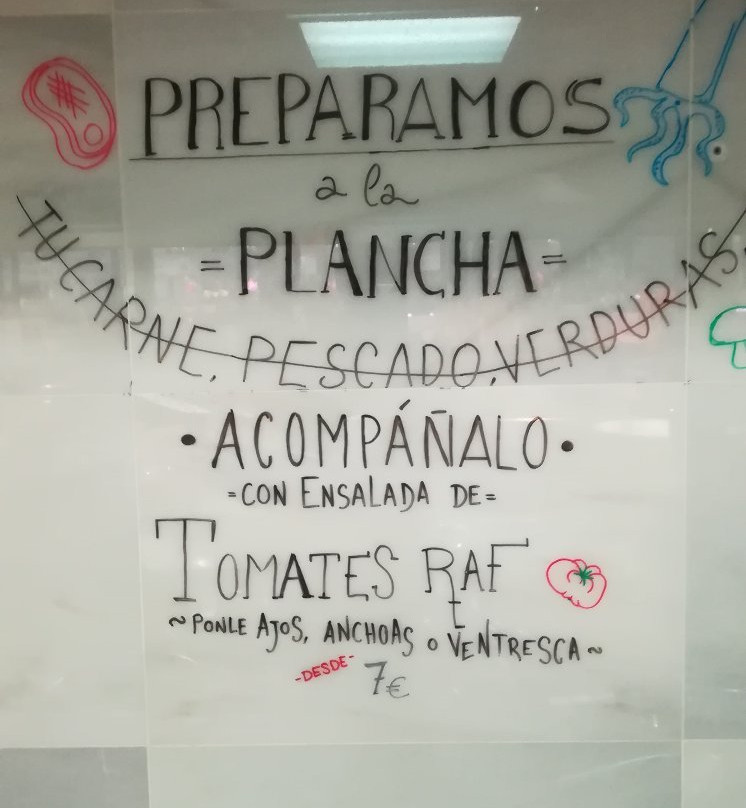 PREPARAMOS
a la
=PLANCHA=
TU CARNE, PESCADO, VERDURAS.
• ACOMPÁÑALO •
=CON ENSALADA DE=
TOMATES RAF
~PONLE AJOS, ANCHOAS O VENTRESCA~
-DESDE- 7€